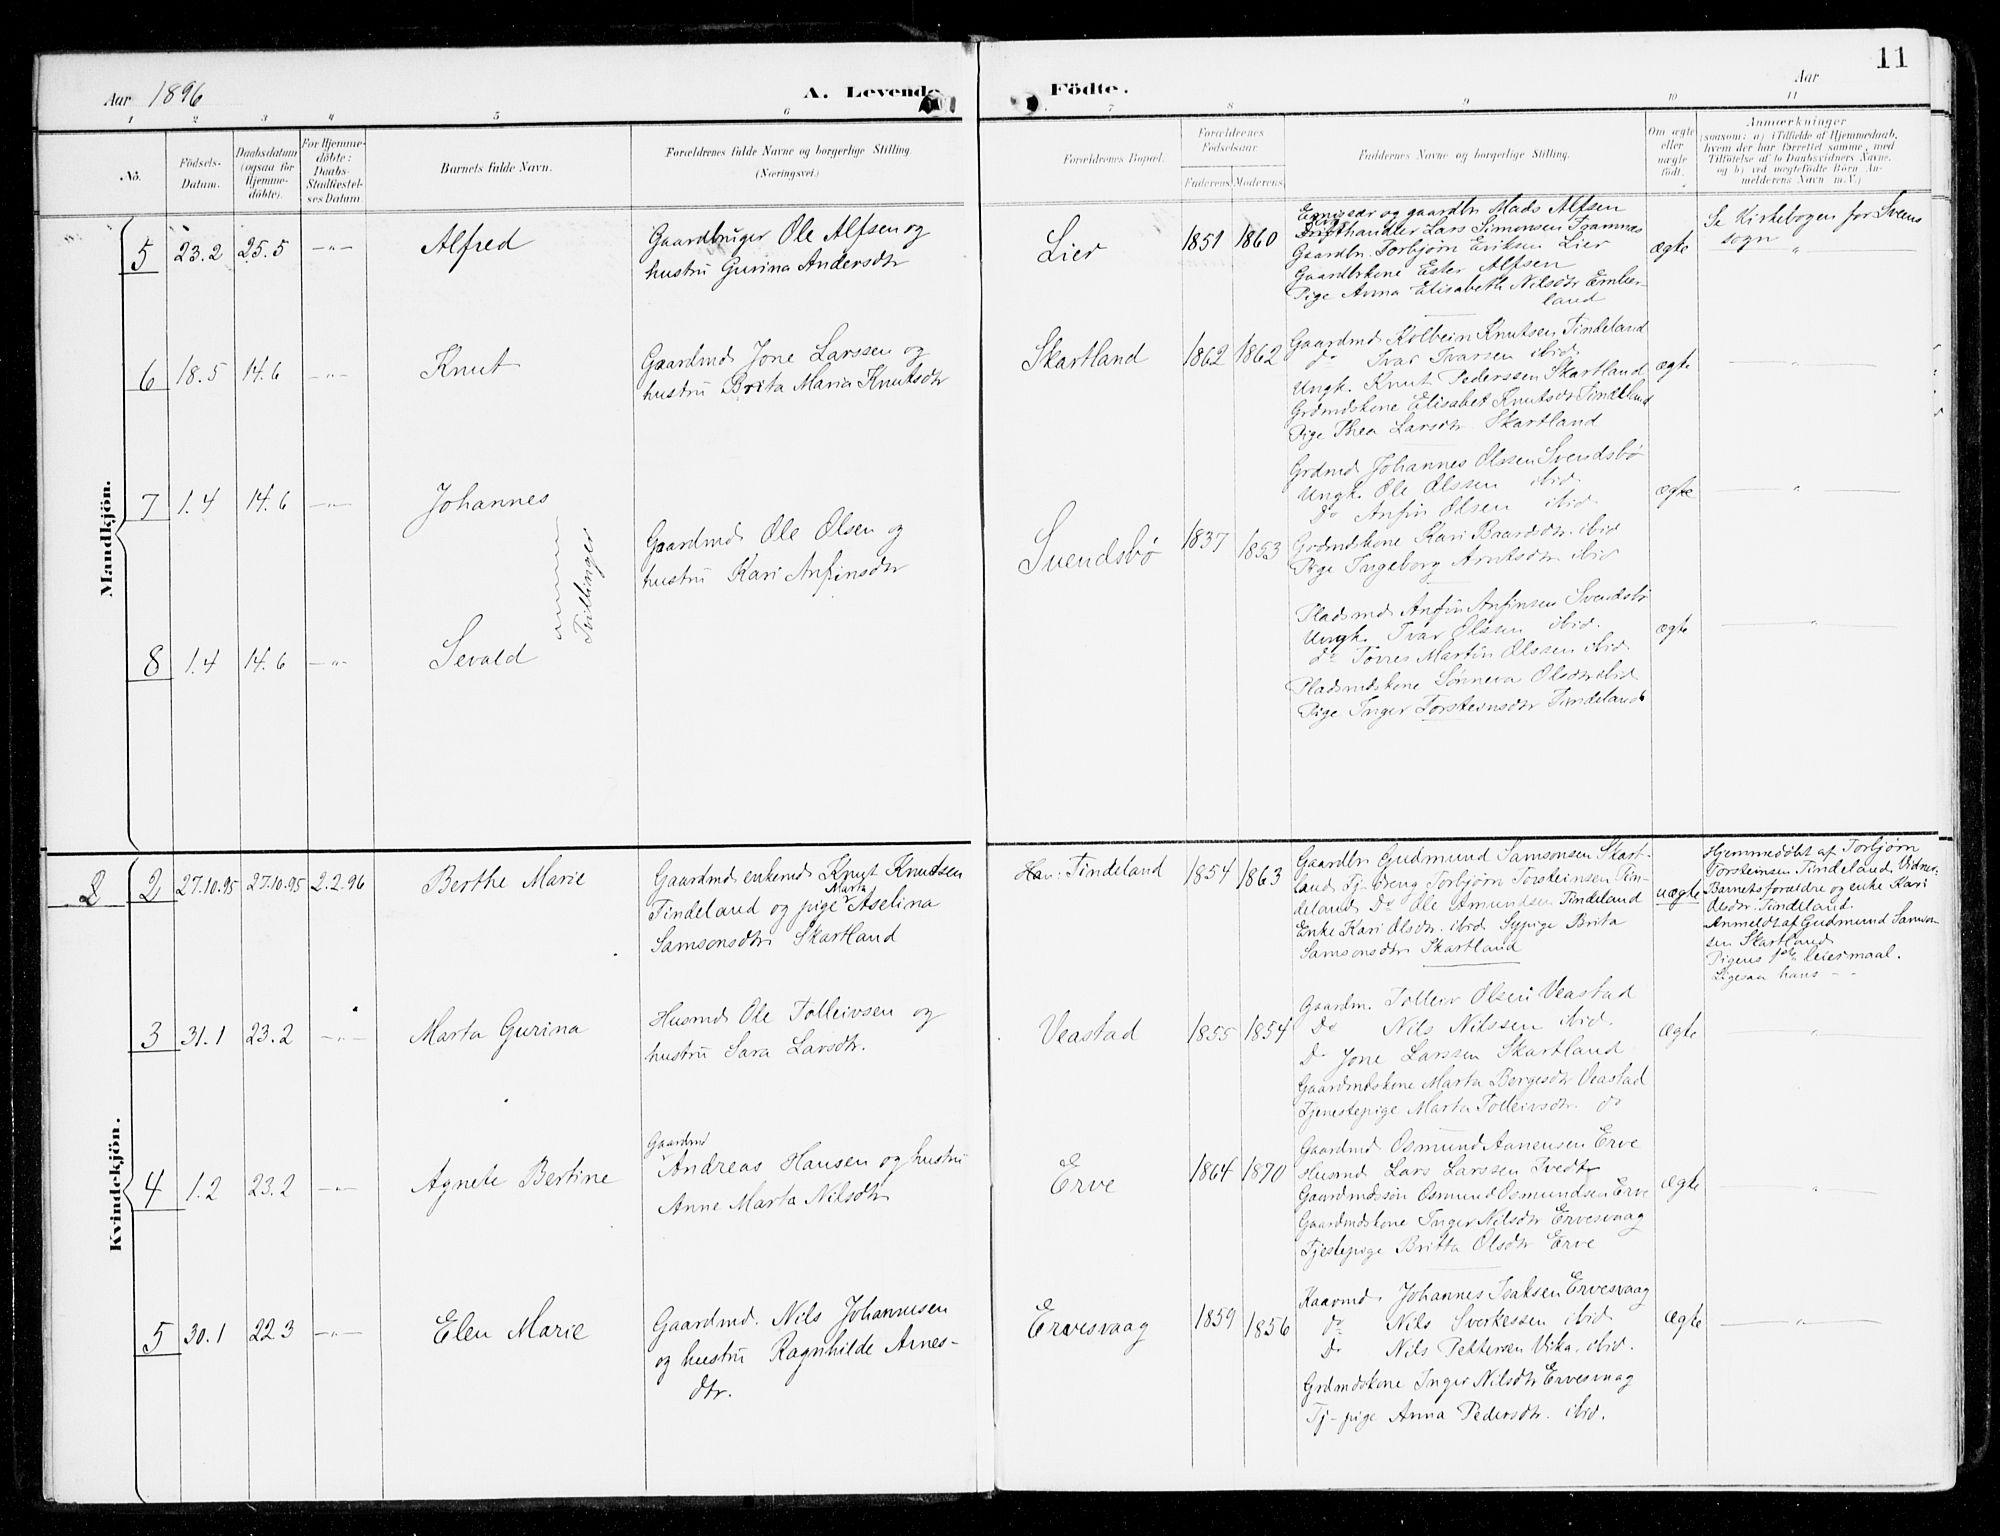 Aar 1896
A. Levende
Födte.
Aar
11
1 2 3 4 5 6 7 8 9 10 11
No.
Födsels-
Datum.
Daabsdatum
(ogsaa för
Hjemme-
döbte).
For Hjemme-
döbte:
Daabs-
Stadfæstel-
ses Datum.
Barnets fulde Navn.
Forældrenes fulde Navne og borgerlige Stilling.
(Næringsvei.)
Forældrenes Bopæl.
Forældrenes
Födselsaar.
Faderens. Moderens.
Faddernes Navne og borgerlige Stilling.
Om ægte
eller
uægte
födt.
Anmærkninger
(saasom: a) i Tilfælde af Hjemmedaab,
hvem der har forrettet samme, med
Tilföielse af to Daabsvidners Navne,
og b) ved uægtefödte Börn An-
melderens Navn m. V.)
Mandkjön.
5 23.2 25.5 -"- Alfred
Gaardbruger Ole Alfsen og
hustru Gurina Andersdtr
Lier 1851 1860
Emissær og gaardbr Mads Alfsen
handler Lars Simonsen Tramnæs
Gaardbr. Torbjørn Eriksen Lier
Gaardbrkone Ester Alfsen
Pige Anna Elisabeth Nilsdtr Ember-
land
ægte
Se Kirkebogen for Sveens
sogn "
6 18.5 14.6 -"- Knut
Gaardmd Jone Larssen og
hustru Brita Maria Knutsdtr
Skartland 1862 1862
Gaardmd Kolbein Knutsen Tindeland
do Ivar Ivarsen ibid
Ungk. Knut Pederssen Skartland
Grdmdskone Elisabet Knutsdtr Tindeland
Pige Thea Larsdtr Skartland
ægte "
7 1.4 14.6 -"- Johannes
Tvillinger
Gaardmd Ole Olsen og
hustru Kari Anfinsdtr
Svendsbø 1837 1853
Grdmd Johannes Olssen Svendsbø
Ungk. Ole Olssen ibid
Do Anfin Olsen ibid
Grdmdskone Kari Baardsdtr ibid
Pige Ingeborg Arntsdtr ibid
ægte "
8 1.4 14.6 -"- Sevald
Pladsmd Anfin Anfinsen Svendsbø
Ungk. Ivar Olssen ibid.
do Tørres Martin Olssen ibid
Pladsmdskone Sønneva Olsdtr ibid
Pige Inger Torsteinsdtr Tindeland
ægte "
Kvindekjön.
2 2 27.10.95 27.10.95 2.2.96 Berthe Marie
Gaardmd enkemd Knut Knudsen
Tindeland og pige Marta Aselina
Samsonsdtr Skartland
Han: Tindeland 1854 1863
Gaardbr Gudmund Samsonsen Skart-
land Tj-dreng Torbjørn Torsteinsen Tin-
deland Do Ole Amundsen Tindeland
Enke Kari Olsdtr. ibid Sypige Brita
Samsonsdtr Skartland
uægte
Hjemmedøbt af Torbjørn
Torsteinsen Tindeland. Vidner:
Barnets forældre og enke Kari
Olsdtr. Tindeland.
Anmeldt af Gudmund Samson-
sen Skartland
Pigens 1ste leiermaal.
Ligesaa hans - -
3 31.1 23.2 -"- Marta Gurina
Husmd Ole Tolleivsen og
hustru Sara Larsdtr.
Veastad 1855 1854
Gaardm. Tolleiv Olsen Veastad
Do Nils Nilssen ibid.
Do Jone Larssen Skartland
Gaardmdskone Marta Bergesdtr Veastad
Tjenestepige Marta Tolleivsdtr. do
ægte "
4 1.2 23.2 -"- Agnete Bertine
Gaardmd
Andreas Hansen og hustru
Anne Marta Nilsdtr
Erve 1864 1870
Gaardmd Osmund Aanensen Erve
Husmd Lars Larssen Tvedt
Gaardmdssøn Osmund Osmundsen Erve
Gaardmdskone Inger Nilsdtr Ervesvaag
Tjestepige Britta Olsdtr Erve
ægte "
5 30.1 22.3 -"- Elen Marie
Gaardmd. Nils Johannesen
og hustru Ragnhilde Arnes-
dtr.
Ervesvaag 1859 1856
Johannes Isaksen Ervesvaag
do Nils Sverkessen ibid
Do Nils Pettersen Vika, ibid.
Grdmdskone Inger Nilsdtr Ervesvaag
Tj-pige Anna Pedersdtr. ibid.
ægte "